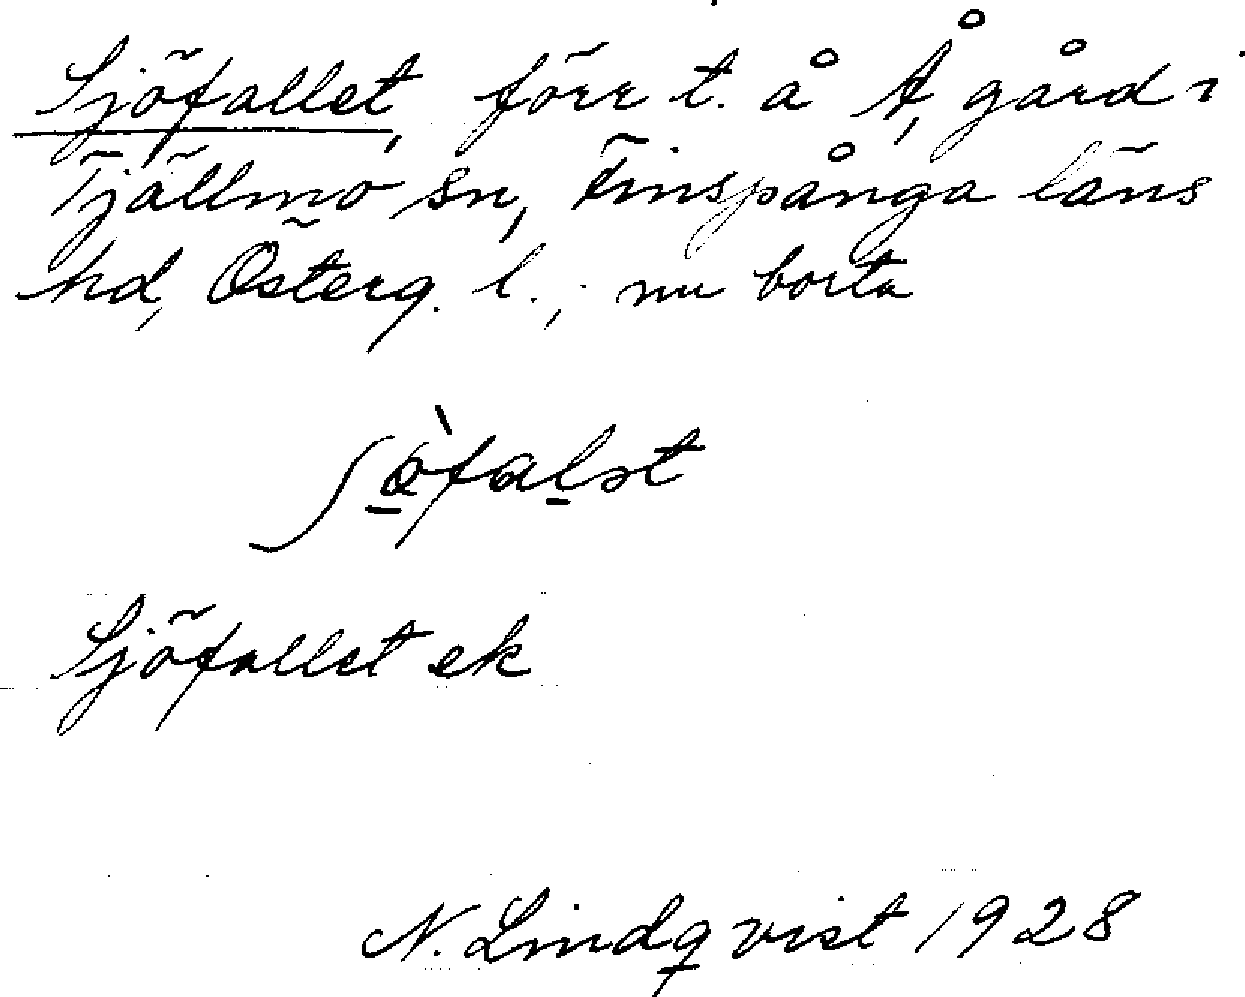 Sjöfallet, förr t. å Å, gård i
Tjällmo sn, Finspånga läns
hd, Österg. l.; nu borta
Sjöfallet ek
N. Lindqvist 1928